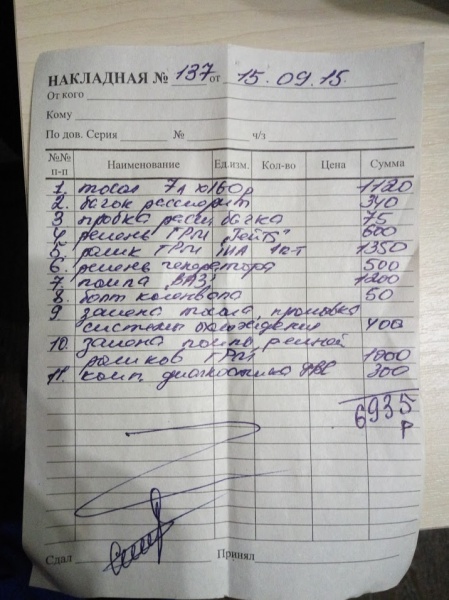 НАКЛАДНАЯ № 137 от 15.09.15.
От кого
Кому
По дов. Серия № ч/з
№№ п-п Наименование Ед.изм. Кол-во Цена Сумма
1. тосол 7л х160р 1120
2. бачок расширит 340
3 пробка расш. бачка 75
4 ремень ГРМ "Гейтс" 600
5. ролик ГРМ INA 1к-т 1350
6. ремень генератора 500
7. помпа "ВАЗ" 1200
8. болт коленвала 50
9 замена тосола, промывка
системы охлаждения 400
10. замена помпы, ремней
роликов ГРМ 1000
11. комп. диагностика 300
6935
р
Сдал Принял